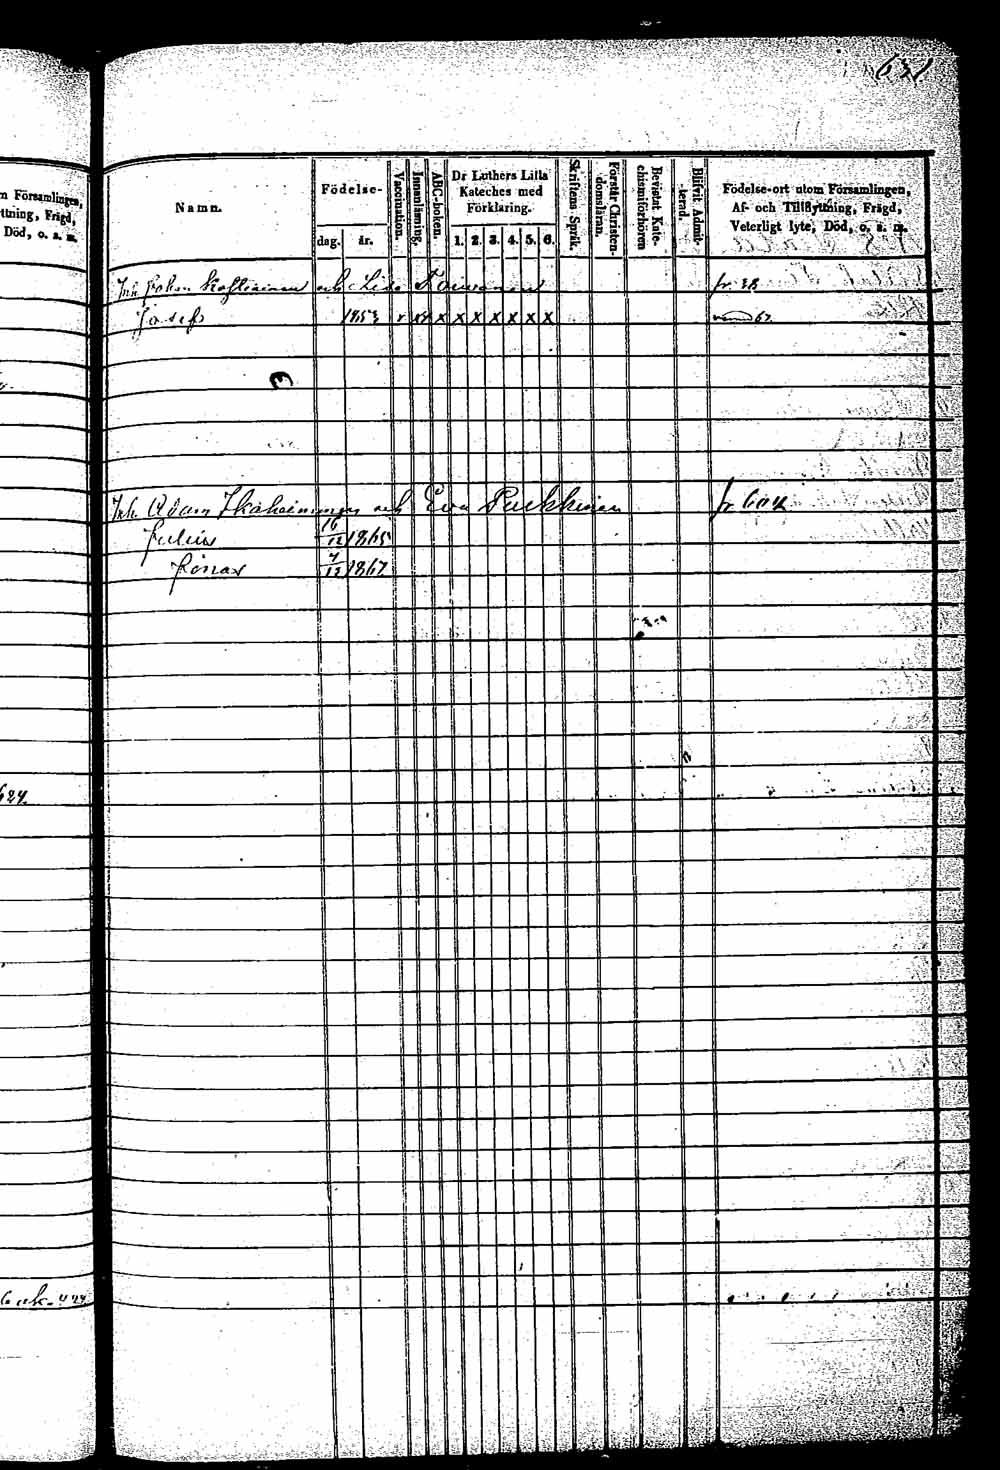 631
m Församlingen,
ttning, Frägd,
Död, o. s. m.
624.
Namn.
Födelse-
dag. år.
Vaccination.
Innanläsning.
ABC-boken.
Dr Luthers Lilla
Kateches med
Förklaring.
1. 2. 3. 4. 5. 6.
Skriftens Språk.
Förstår Christen-
domsläran.
Bevistat Kate-
chismiförhören
Blifvit Admit-
terad.
Födelse-ort utom Församlingen,
Af- och Tillflyttning, Frägd,
Veterligt lyte, Död, o. s. m.
och Lisa Toivanen fr. 38
Josef 1853 v xx x x x x x x x 67.
Inh. Adam Ikäheimonen och Eva Purkkinen fr 604
Julius 16/12 1865
Jonas 7/12 1867